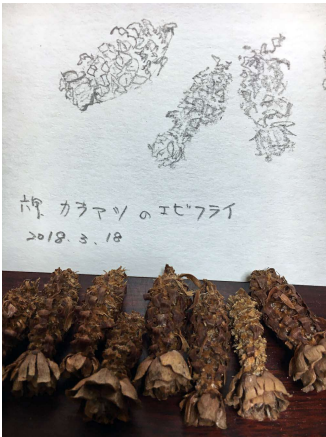 カラマツのエビフライ
2018.3.18